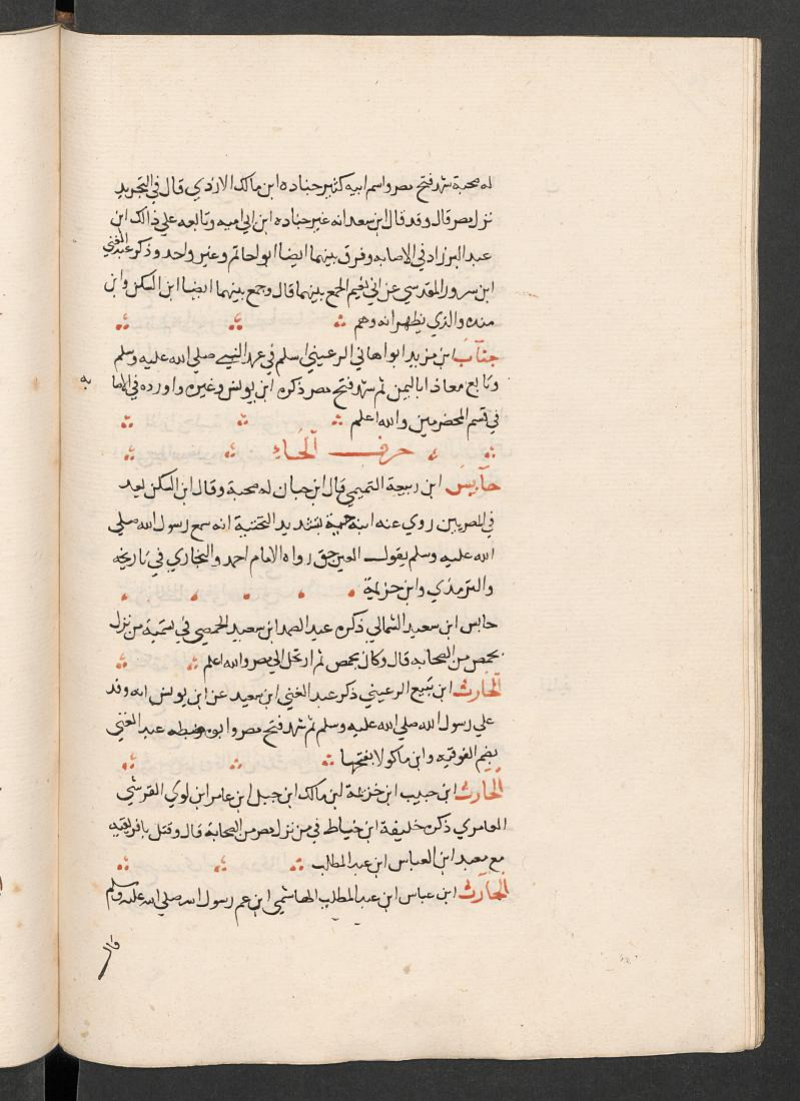 له صحبة شهد فتح مصر واسم ابيه كثير جناده ابن مالك الازدي قال في التجريد
نزل مصر قال وقد قال ابن سعد انه غير جناده ابن ابي اميه وتابعه علي ذالك ابن
عبد البر زاد في الاصابه وفرق بينهما ايضا ابو احاتم وغير واحد وذكر عبد الغني
ابن سرور المقدسي عن ابي نعيم الجمع بينهما قال وجمع بينهما ايضا ابن السكن وابن
منده والذي يظهر انه وهم
جناب ابن مزيد ابوا هاني الرعيني اسلم في عهد النبي صلي الله عليه وسلم
وتابع معاذا باليمن ثم شهد فتح مصر ذكره ابن يونس وغيره واورده في الاصا به
في قسم المخضرمين والله اعلم
حرف الحاء
حابس ابن ربيعة التميمي قال ابن حبان له صحبة وقال ابن السكن يعد
في المصريين روي عنه ابنه حية بتشديد التحتية انه سمع رسول الله صلي
الله عليه وسلم يقول العين حق رواه الامام احمد والبخاري في تاريخه
والترمذي وابن خزيمة
حابس ابن سعيد الثمالي ذكره عبد الصمد ابن سعيد الحمصي في تسمية من نزل
بحمص من الصحابه قال وكان بحمص ثم ارتحل الي مصر والله اعلم
الحارث ابن تبيع الرعيني ذكر عبد الغني ابن سعيد عن ابن يونس انه وفد
علي رسول الله صلي الله عليه وسلم ثم شهد فتح مصر وابوه ضبطه عبد الغني
بضم الفوقيه وابن ماكولا بفتحها
الحارث ابن حبيب ابن خزيمة ابن مالك ابن جبل ابن عامر ابن لوي القرشي
العامري ذكره خليفة ابن خياط في من نزل مصر من الصحابة قال وقتل بافريقيه
مع معبد ابن العباس ابن عبد المطالب
الحارث ابن عباس ابن عبد المطلب الهاشمي ابن عم رسول الله صلي الله عليه وسلم
قال